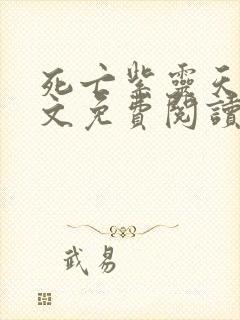 死亡紫靈天
文免費閱讀
武易